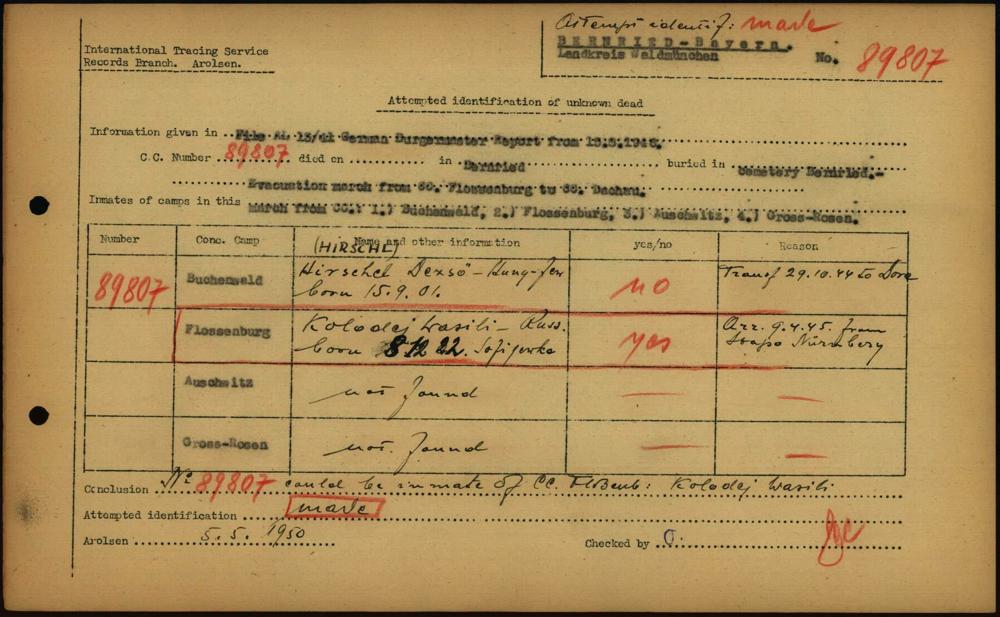 Attempt identif: made
International Tracing Service
Records Branch. Arolsen.
BERNRIED-Bayern.
Landkreis Waldmünchen
No. 89807
Attempted identification of unknown dead
Information given in File AL 13/41 German Burgermaster Report from
C.C. Number 89807 died on in Bernried buried in Cemetery Bernried.-
Evacuation march from CC. Flossenburg to CC. Dachau.
Inmates of camps in this march from CC.: 1.) Buchenwald, 2.) Flossenburg, 3.) Auschwitz, 4.) Gross-Rosen.
Number Conc. Camp Name and other information yes/no Reason
(HIRSCHL)
89807 Buchenwald Hirschel Dezsö - Hung-Jew no Transf 29.10.44 to Dora
born 15.9.01.
Flossenburg Kolodej Wasili - Russ. yes Arr. 9.4.45. from
born 8 12 22. Sofijewka Stapo Nürnberg
Auschwitz not found — —
Gross-Rosen not found — —
Conclusion No 89807 could be inmate of CC. Floßenb: Kolodej Wasili
Attempted identification made
Arolsen 5.5. 1950 Checked by